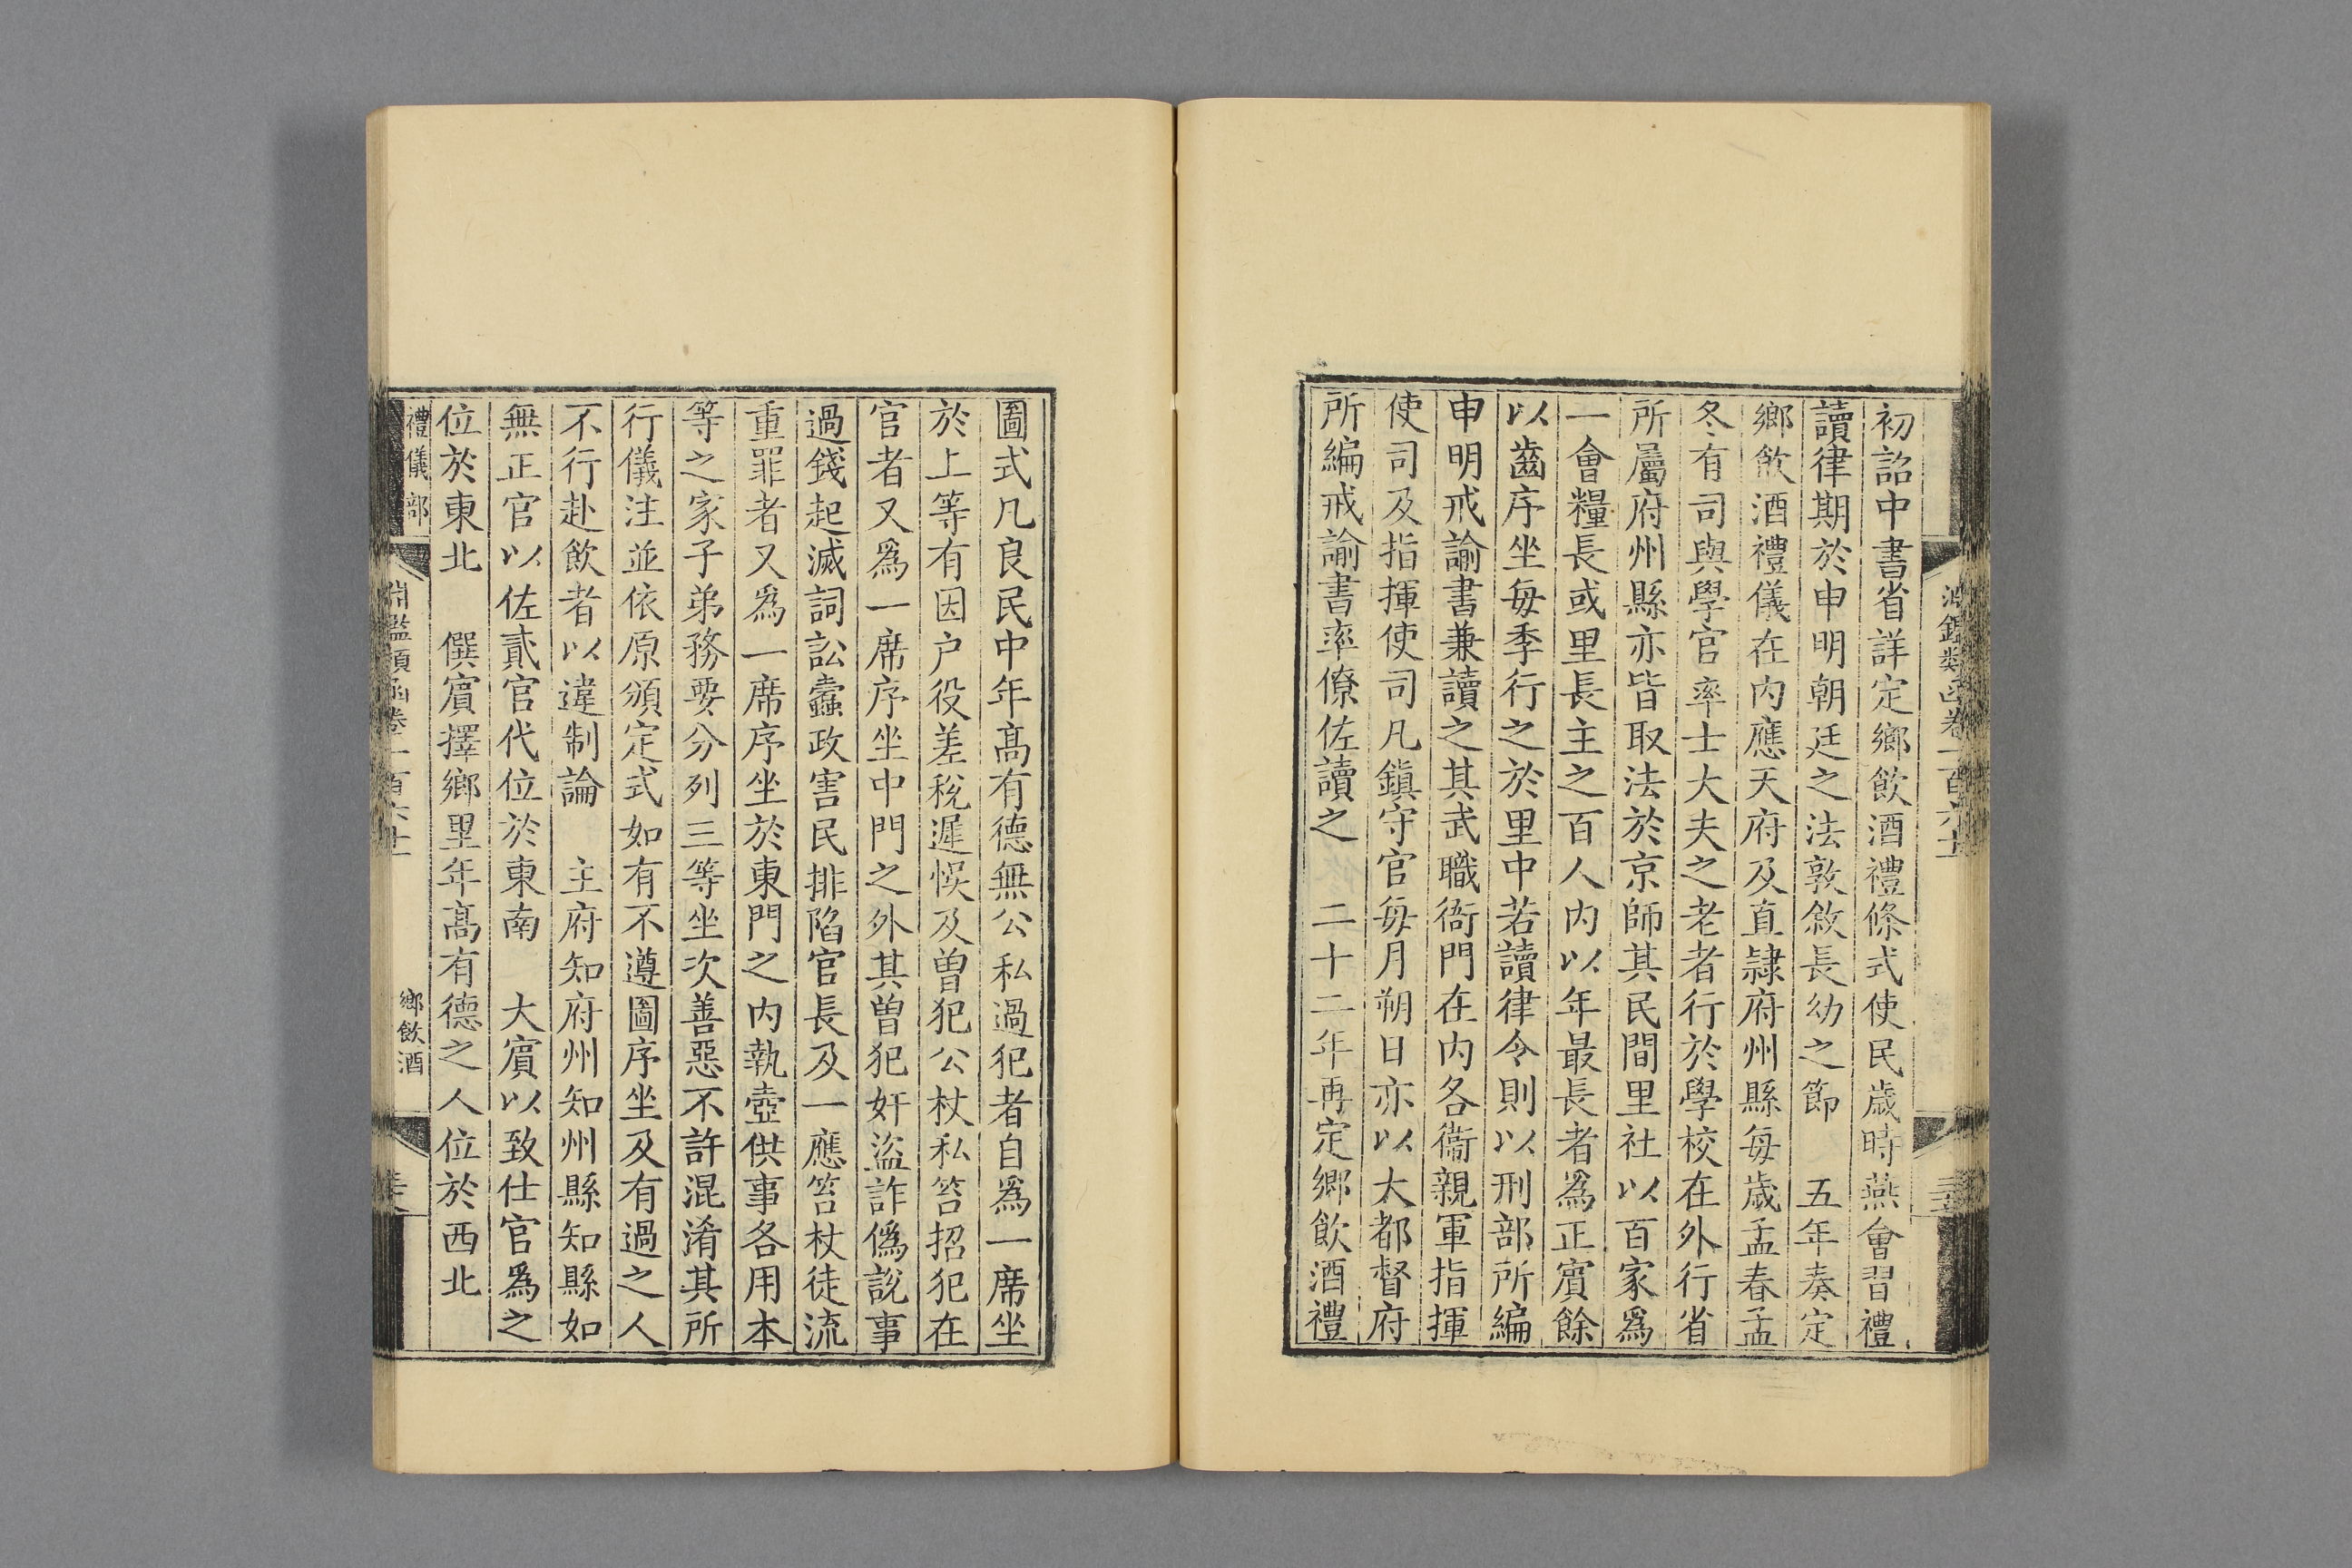 初詔中書省詳定鄉飲酒禮條式使民歲時燕會習禮
讀律期於申明朝廷之法敦敘長幼之節　五年奏定
鄉飲酒禮儀在內應天府及直隷府州縣每歲孟春孟
冬有司與學官率士大夫之老者行於學校在外行省
所屬府州縣亦皆取法於京師其民間里社以百家爲
一會糧長或里長主之百人內以年最長者爲正賓餘
以齒序坐每季行之於里中若讀律令則以刑部所編
申明戒諭書兼讀之其武職衙門在內各衞親軍指揮
使司及指揮使司凡鎭守官每月朔日亦以大都督府
所編戒諭書率僚佐讀之　二十二年再定鄉飲酒禮
圖式凡良民中年高有德無公私過犯者自爲一席坐
於上等有因户役差稅遲悞及曽犯公杖私笞招犯在
官者又爲一席序坐中門之外其曽犯奸盜詐僞說事
過錢起滅詞訟蠹政害民排陷官長及一應笞杖徒流
重罪者又爲一席序坐於東門之內執壺供事各用本
等之家子弟務要分列三等坐次善惡不許混淆其所
行儀注並依原頒定式如有不遵圖序坐及有過之人
不行赴飲者以違制論　主府知府州知州縣知縣如
無正官以佐貳官代位於東南　大賓以致仕官爲之
位於東北　僎賓擇鄉里年高有德之人位於西北
禮儀部
鄉飲酒